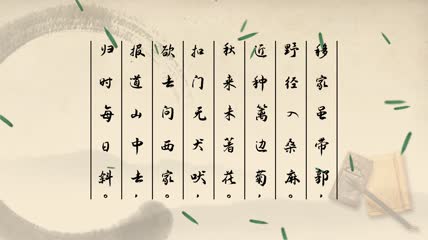 移家虽带郭，
野径入桑麻。
近种篱边菊，
秋来未著花。
扣门无犬吠，
欲去问西家。
报道山中去，
归时每日斜。